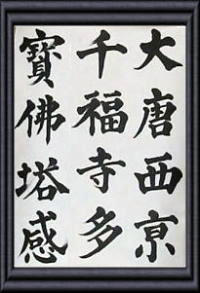 大唐西京
千福寺多
寶佛塔感